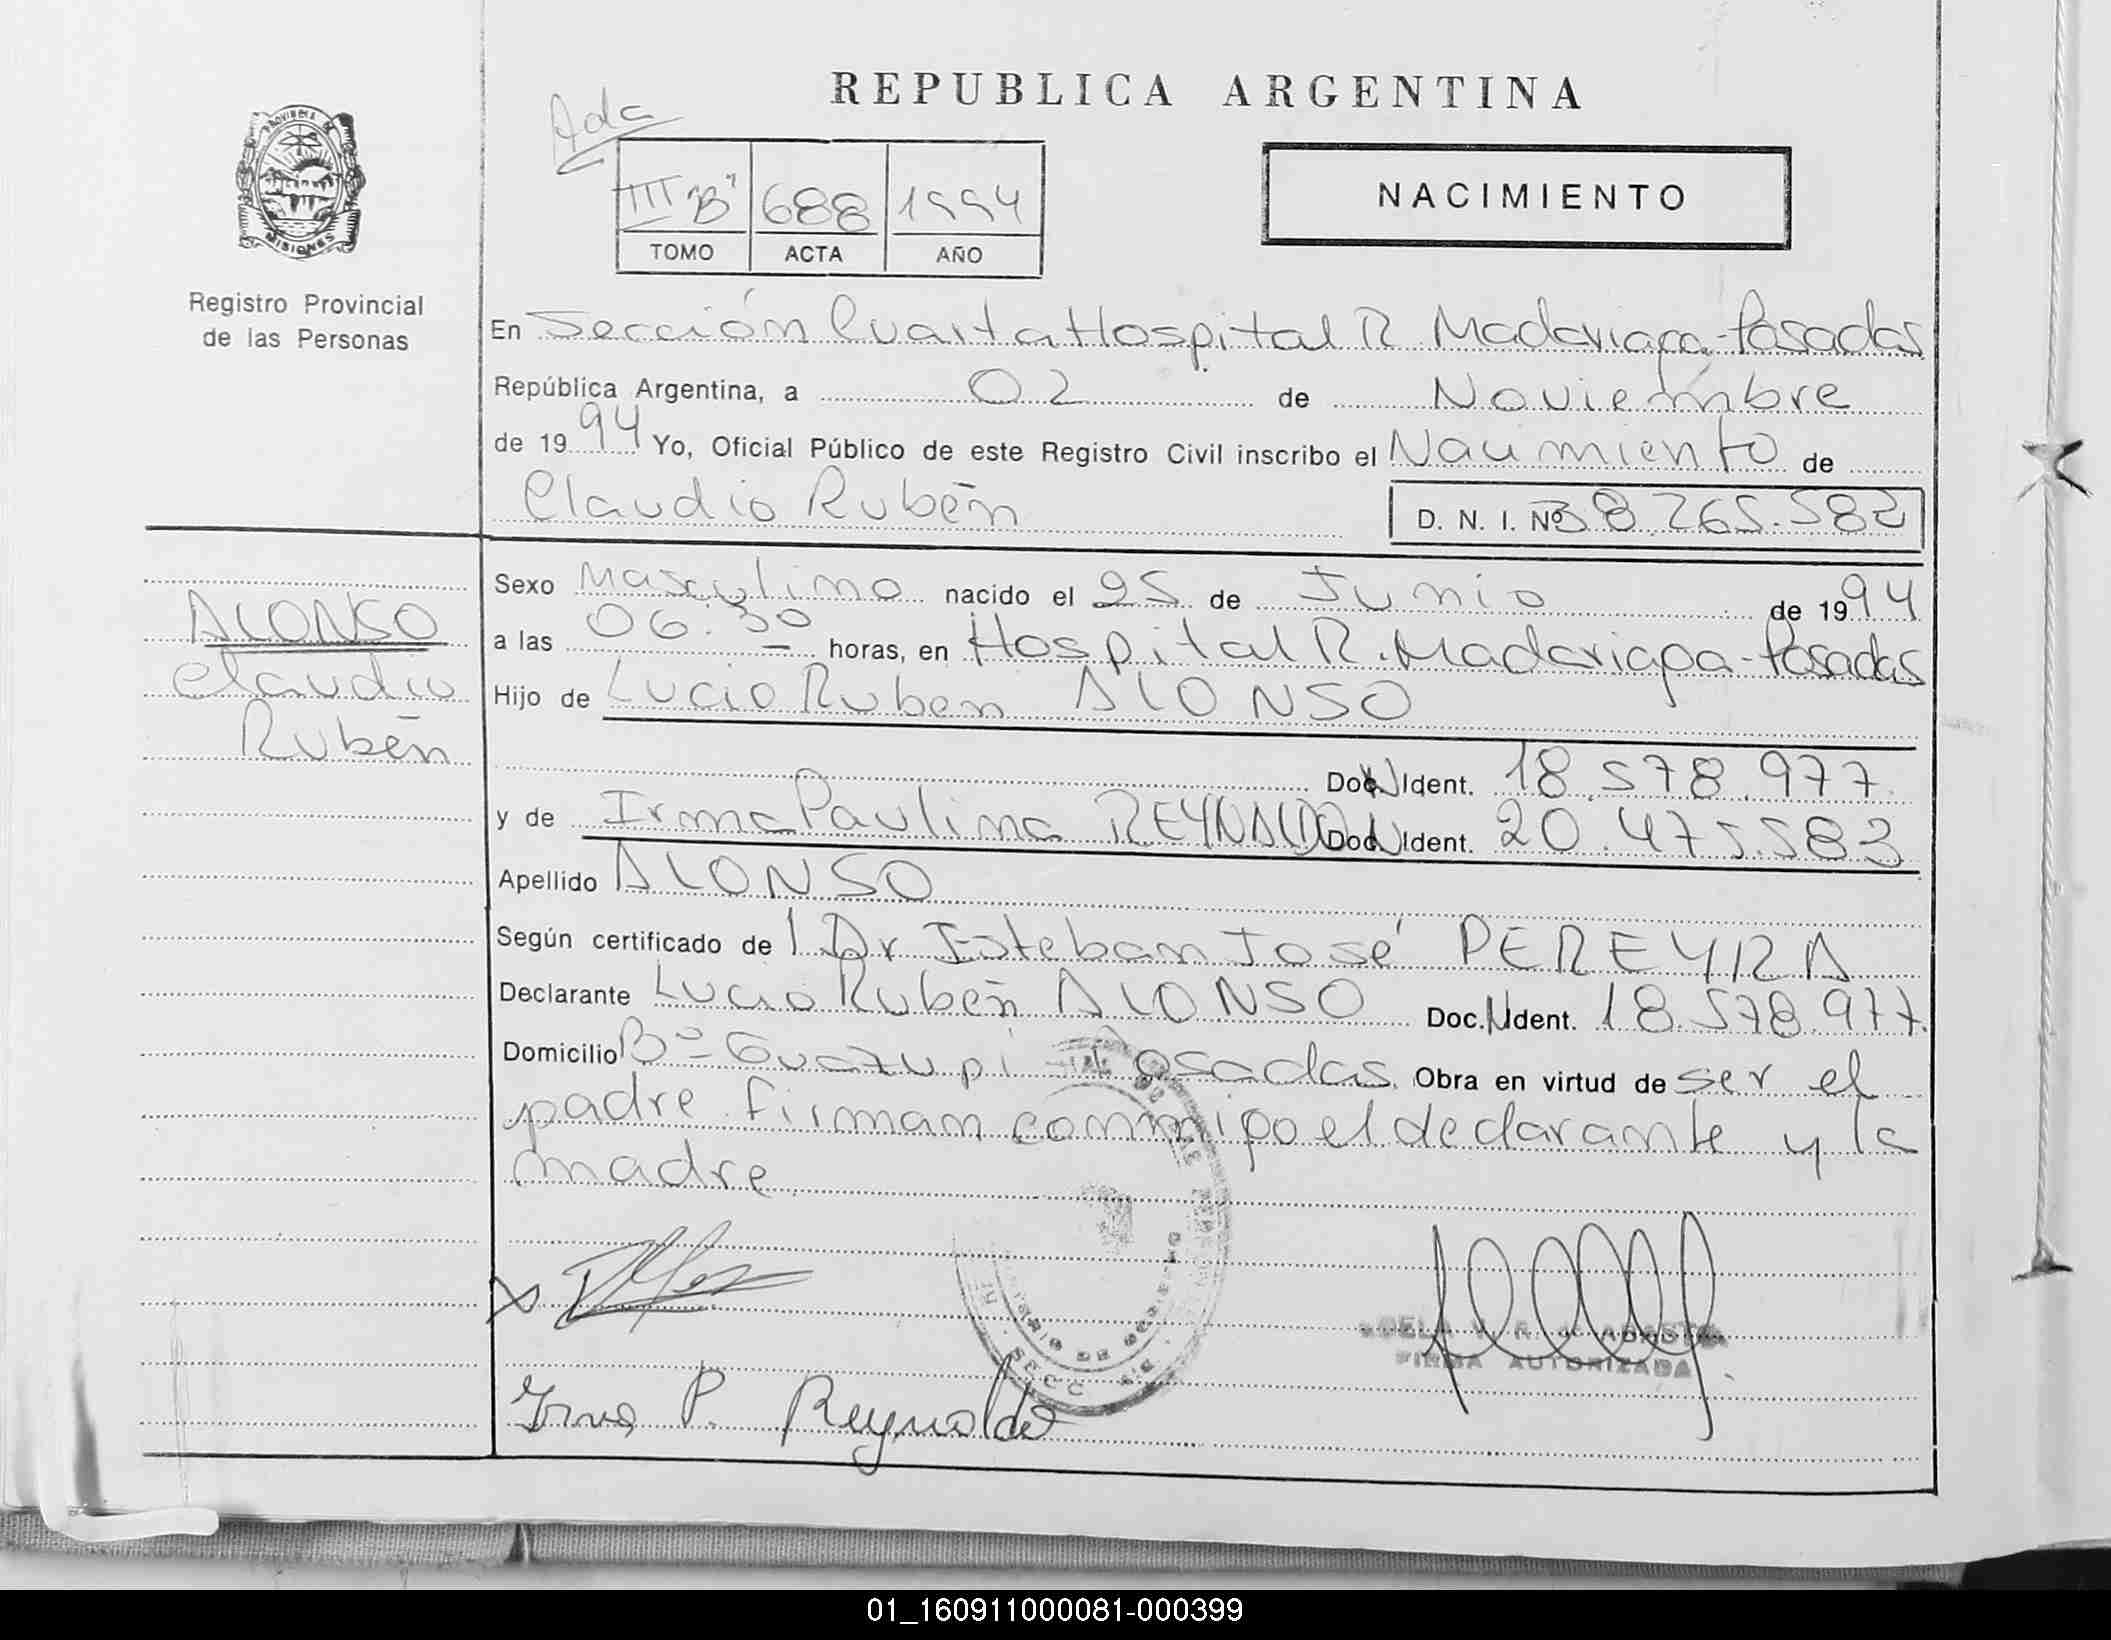 REPUBLICA ARGENTINA
Ada
III "B" 688 1994
TOMO ACTA AÑO
NACIMIENTO
PROVINCIA DE
MISIONES
Registro Provincial
de las Personas
En Sección Cuarta Hospital R. Madariaga - Posadas
República Argentina, a 02 de Noviembre
de 1994 Yo, Oficial Público de este Registro Civil inscribo el Nacimiento de
Claudio Rubén D. N. I. Nº 38.265.582
ALONSO
Claudio
Rubén
Sexo Masculino nacido el 25 de Junio de 1994
a las 06:30 horas, en Hospital R. Madariaga - Posadas
Hijo de Lucio Ruben ALONSO
Doc. N Ident. 18.578.977
y de Irma Paulina REYNALDO Doc. N Ident. 20.475.583
Apellido ALONSO
Según certificado de l Dr Esteban José PEREYRA
Declarante Lucio Rubén ALONSO Doc. N Ident. 18.578.977.
Domicilio Bº Guazupi - Posadas. Obra en virtud de ser el
padre. firman conmigo el declarante y la
madre
FIRMA AUTORIZADA
Irma P. Reynoldo
01_160911000081-000399